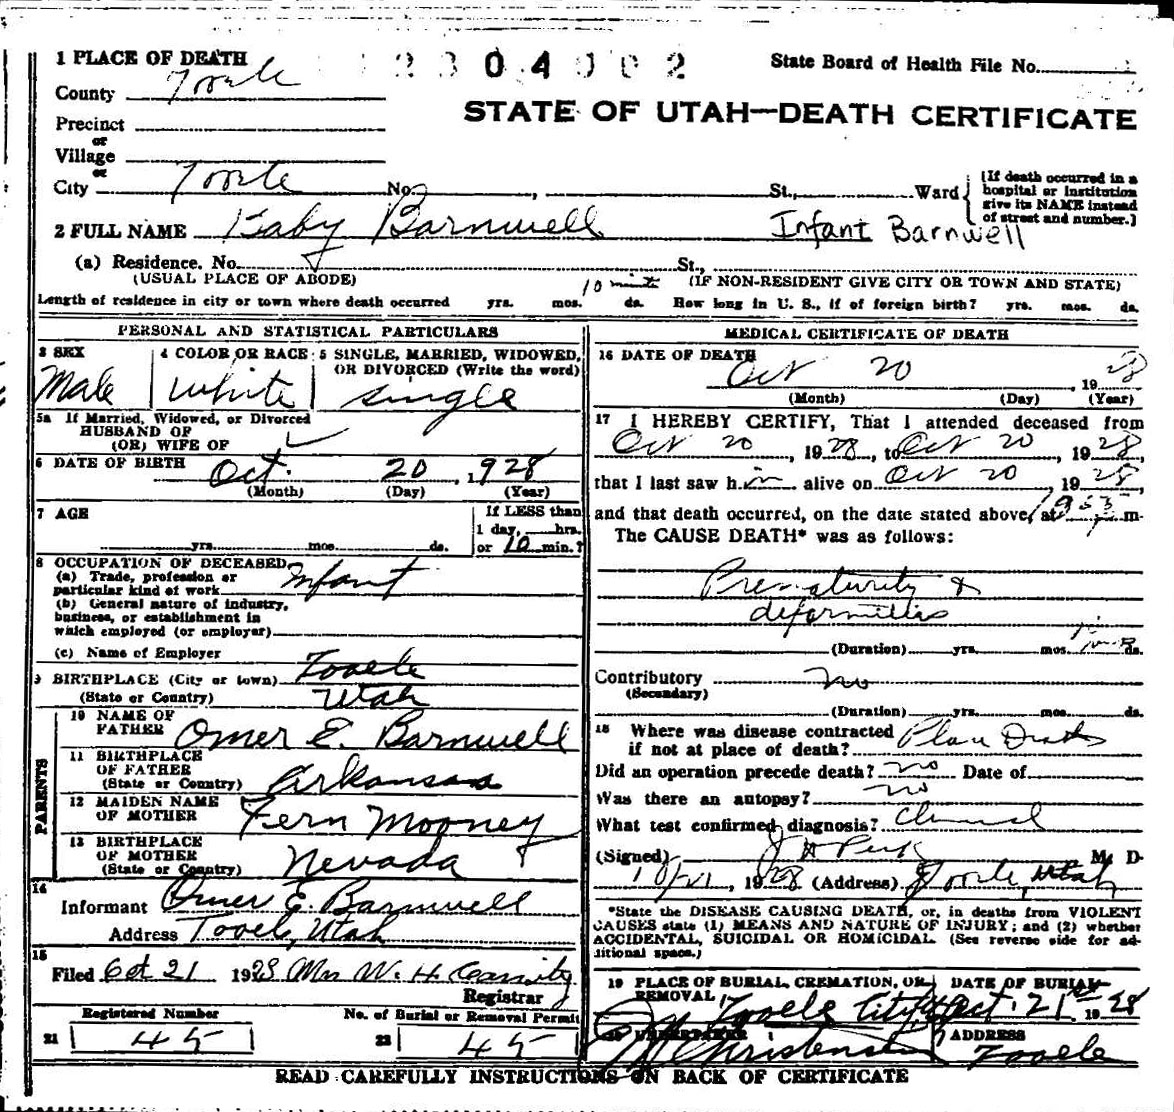 1 PLACE OF DEATH 2 3 0 4 0 0 2 State Board of Health File No.
County Tooele
STATE OF UTAH—DEATH CERTIFICATE
Precinct
or
Village
or
City Tooele No. , St., Ward
[If death occurred in a
hospital or institution
give its NAME instead
of street and number.]
2 FULL NAME Baby Barnwell Infant Barnwell
(a) Residence. No. St.,
(USUAL PLACE OF ABODE) (IF NON-RESIDENT GIVE CITY OR TOWN AND STATE)
10 minute
Length of residence in city or town where death occurred yrs. mos. ds. How long in U. S., if of foreign birth? yrs. mos. ds.
PERSONAL AND STATISTICAL PARTICULARS
3 SEX 4 COLOR OR RACE 5 SINGLE, MARRIED, WIDOWED,
OR DIVORCED (Write the word)
Male White Single
5a If Married, Widowed, or Divorced
HUSBAND OF
(OR) WIFE OF
6 DATE OF BIRTH Oct. 20, 1928
(Month) (Day) (Year)
7 AGE If LESS than
1 day, hrs.
yrs. mos. ds. or 10 min.?
8 OCCUPATION OF DECEASED
(a) Trade, profession or
particular kind of work Infant
(b) General nature of industry,
business, or establishment in
which employed (or employer)
(c) Name of Employer
9 BIRTHPLACE (City or town) Tooele
(State or Country) Utah
PARENTS
10 NAME OF
FATHER Omer E. Barnwell
11 BIRTHPLACE
OF FATHER
(State or Country) Arkansas
12 MAIDEN NAME
OF MOTHER Fern Mooney
13 BIRTHPLACE
OF MOTHER
(State or Country) Nevada
14
Informant Omer E. Barnwell
Address Tooele, Utah
15
Filed Oct 21 1928 Mrs W. H. Cassity
Registrar
Registered Number No. of Burial or Removal Permit
21 45 22 45
MEDICAL CERTIFICATE OF DEATH
16 DATE OF DEATH
Oct 20, 1928
(Month) (Day) (Year)
17 I HEREBY CERTIFY, That I attended deceased from
Oct 20, 1928, to Oct 20, 1928,
that I last saw h im alive on Oct 20, 1928,
and that death occurred, on the date stated above, at m.
The CAUSE DEATH* was as follows:
Prematurity &
deformities
(Duration) yrs. mos. ds.
Contributory no
(Secondary)
(Duration) yrs. mos. ds.
18 Where was disease contracted
if not at place of death? Place Death
Did an operation precede death? no Date of
Was there an autopsy? no
What test confirmed diagnosis? Clinical
(Signed) J H Peck M. D.
10/21, 1928 (Address) Tooele, Utah
*State the DISEASE CAUSING DEATH, or, in deaths from VIOLENT
CAUSES state (1) MEANS AND NATURE OF INJURY; and (2) whether
ACCIDENTAL, SUICIDAL OR HOMICIDAL. (See reverse side for ad-
ditional space.)
19 PLACE OF BURIAL, CREMATION, OR DATE OF BURIAL
REMOVAL
Tooele City Oct. 21st 1928
20 UNDERTAKER ADDRESS
Christensen Tooele
READ CAREFULLY INSTRUCTIONS ON BACK OF CERTIFICATE